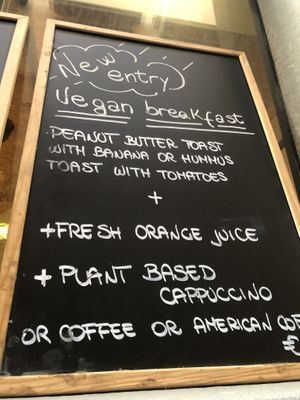 New
entry
Vegan breakfast
PEANUT BUTTER TOAST
WITH BANANA OR HUMMUS
TOAST WITH TOMATOES
+
+FRESH ORANGE JUICE
+ PLANT BASED
CAPPUCCINO
OR COFFEE OR AMERICAN COF
€